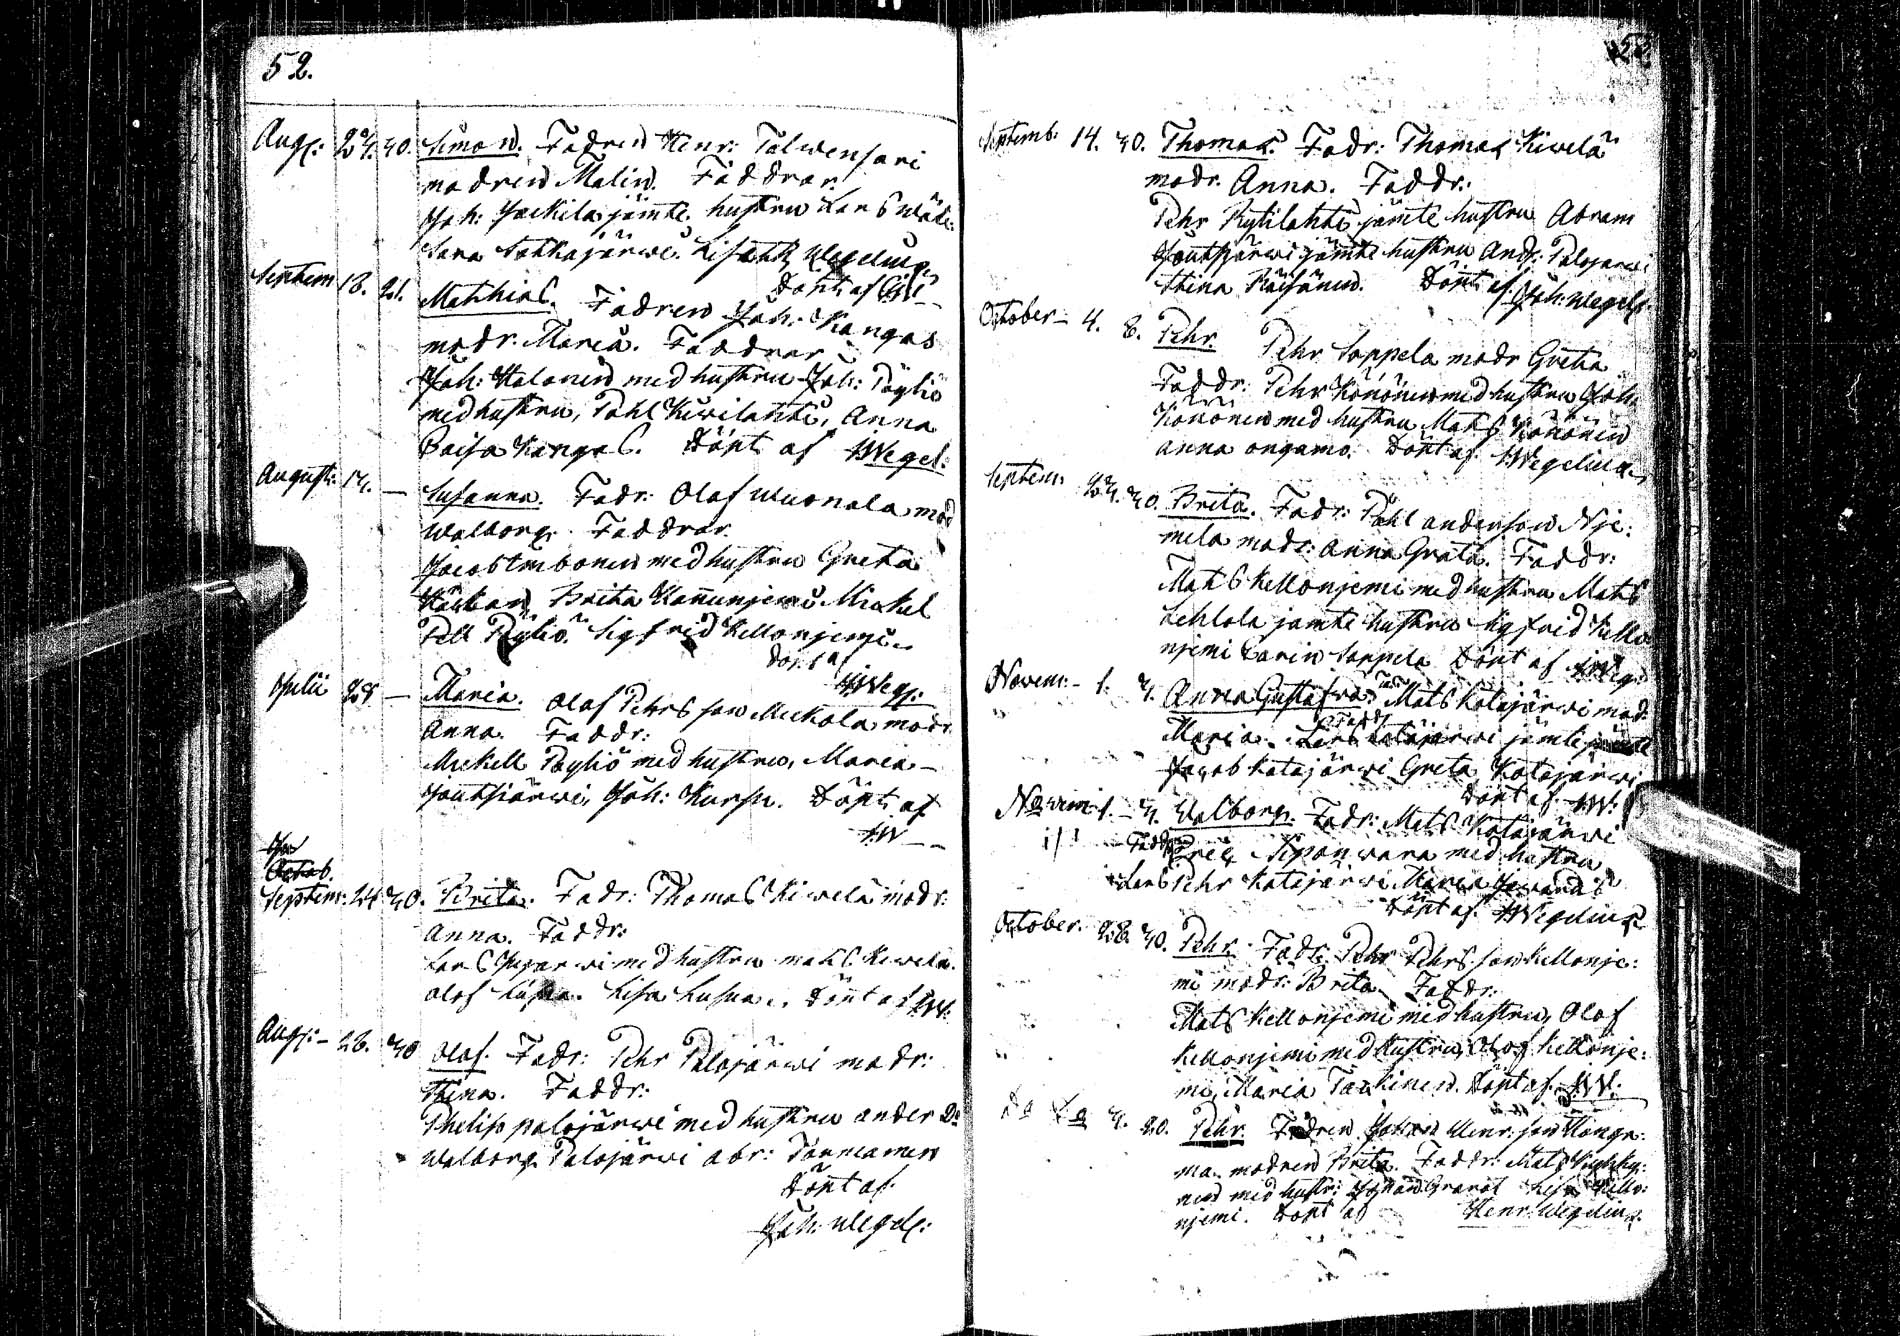 52.
Aug: 29. 30. Simon. Fadren Henr: Talwensari
madren Malin. Faddrar.
Joh: Jackila jämte hustru Lars
Sara Sokkajärwi. Lisa Wegelius
Döpt af HW
Septem 18. 21. Matthias. Fadren Joh: Kangas
modr. Maria. Faddrar
Joh: Halonen med hustru Joh: Pöyliö
med hustru, Påhl Kurilahti, Anna
Caisa Kangas. Döpt af HWegel:
August: 17. — Susanna. Fadr: Olaf Wuonala, mod
Walborg. Faddrar.
Jacob Imbonen med hustru Greta
Brita Kannunjemi Mickel
Pell Pöyliö. Sigfrid Kellonjemi
Döpt af HWeg:
Julii 28 — Maria. Olaf Pehrsson Muckola modr
Anna. Faddr:
Mickell Pöyliö med hustru, Maria
Joutsiärwi, Joh: Kursu. Döpt af
HW
Octob.
Septem: 24 30. Brita. Fadr: Thomas Kiwelä modr:
Anna. Faddr:
Lars med hustru Mats Kiwelä.
Olof Lisa Döpt af HW:
Aug: – 26. 30 Olof. Fadr: Pehr Palojärwi modr:
Stina. Faddr:
Philip palojärwi med hustru ander Do
Walborg Palojärwi abr: Tanniainen
Döpt af
Joh: Wegel:
52
Septemb: 14. 30. Thomas. Fadr: Thomas Kiwelä
modr. Anna. Faddr:
Pehr Kytilahti jämte hustru Abram
Joutsjärwi jämte hustru And: Palojarwi
Stina Räisänen. Döpt af Joh: Wegel:
October – 4. 8. Pehr. Pehr Soppela modr Greta
Faddr: Pehr Könönen med hustru Joh:
Könönen med hustru Mats Könönen
anna ongamo. Döpt af HWegelius
Septem: 29. 30. Brita. Fadr: Påhl anderson Nje:
mela modr: Anna Greta. Faddr:
Mats Kellonjemi med hustru Mats
Lehtola jamte hustru Sigfrid Kello
njemi Carin Soppela Döpt af HWeg:
Novem: – 1. 7. Anna Gustafwa. Mats Katajärwi mod:
Maria. Faddr Lars Katajärwi jämte
Jacob Katajärwi Greta Katajärwi
Döpt af HW:
Novem 1. – 7. Walborg. Fadr: Mats Katajärwi
Faddr Eric Niponwara med hustru
Lars Pehr Katajärwi Maria
Döpt af HWegelius
October. 28. 30. Pehr. Fadr: Pehr Pehrsson Kellonje:
mi modr: Brita. Faddr:
Mats Kellonjemi med hustru, Olof
Kellonjemi med hustru, Olof Kellonje:
mi, Maria Tackinen. Döpt af HW.
do do 7. 20. Pehr. Fadren Johan Henr:son Honga:
ma. modren Brita. Faddr: Mats
nen med hustr: Johan Granat Lisa Kello:
njemi. Döpt af Henr. Wegelius.